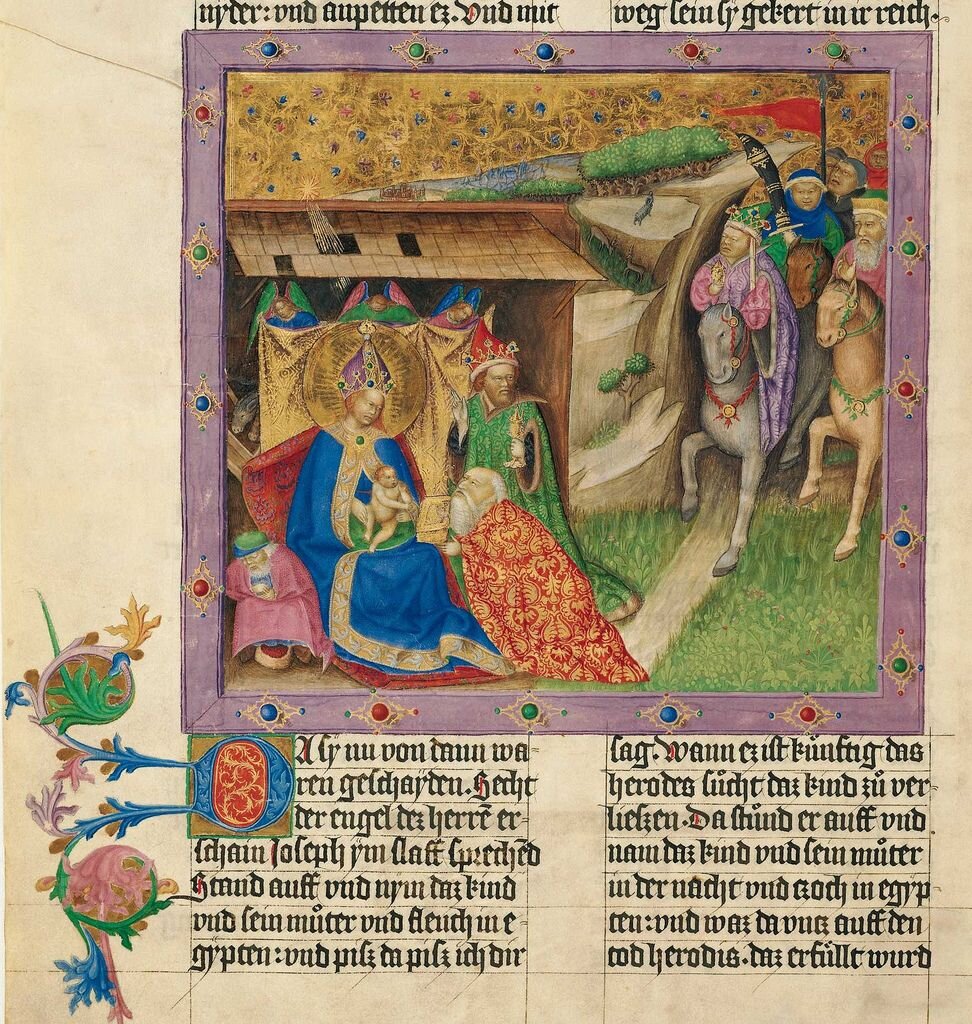 nyder: vnd anpetten ez. Vnd mit
weg sein sy gekert in ir reich.
DA sy nu von dann wa=
ren geschayden. Secht
der engel dez herrē er=
schain Joseph ym slaff sprechēd
Stand auff vnd nym daz kind
vnd sein můter vnd fleuch in e=
gypten: vnd pisz da pisz ich dir
sag. Wann ez ist künftig das
herodes sůcht daz kind zů ver=
liesen. Da stůnd er auff vnd
nam daz kind vnd sein můter
in der nacht vnd czoch in egyp
ten: vnd waz da vntz auff den
tod herodis. daz erfüllt wurd